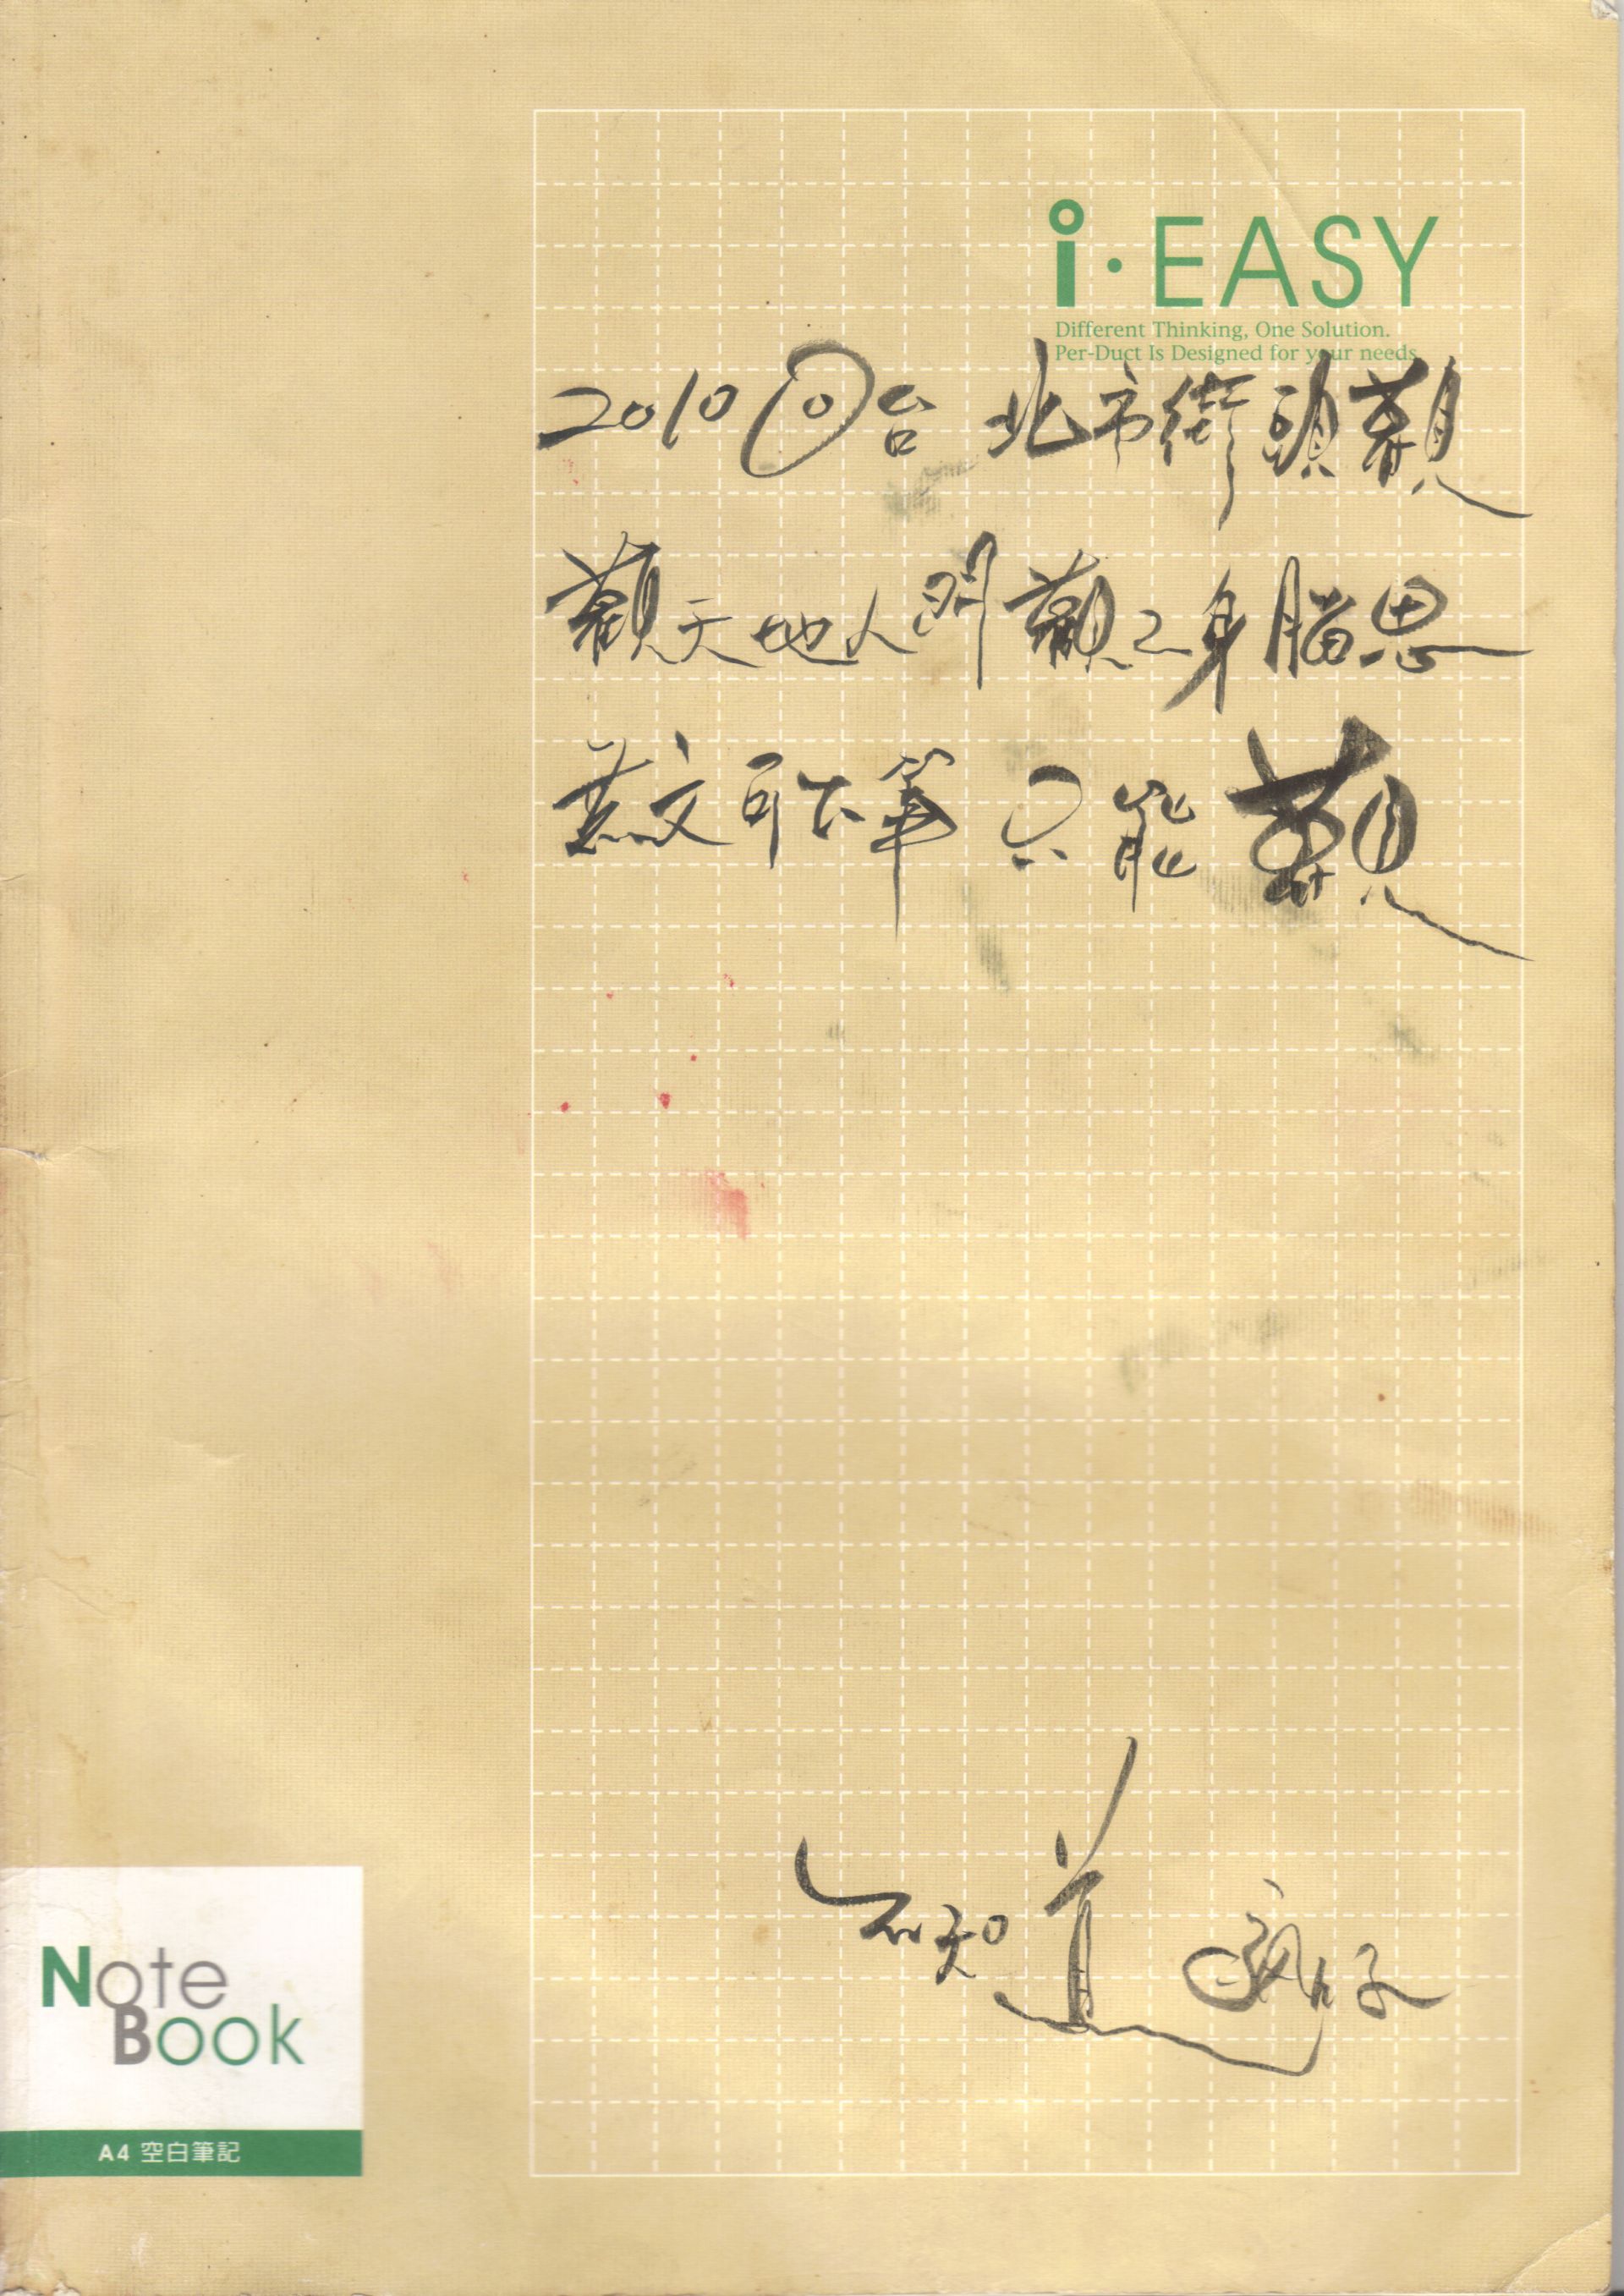 i·EASY
Different Thinking, One Solution.
Per-Duct Is Designed for your needs
2010回台 北市街頭觀
觀天地人間觀己身腦思
無文可下筆 只能觀
不知道 瘋子
Note
Book
A4 空白筆記